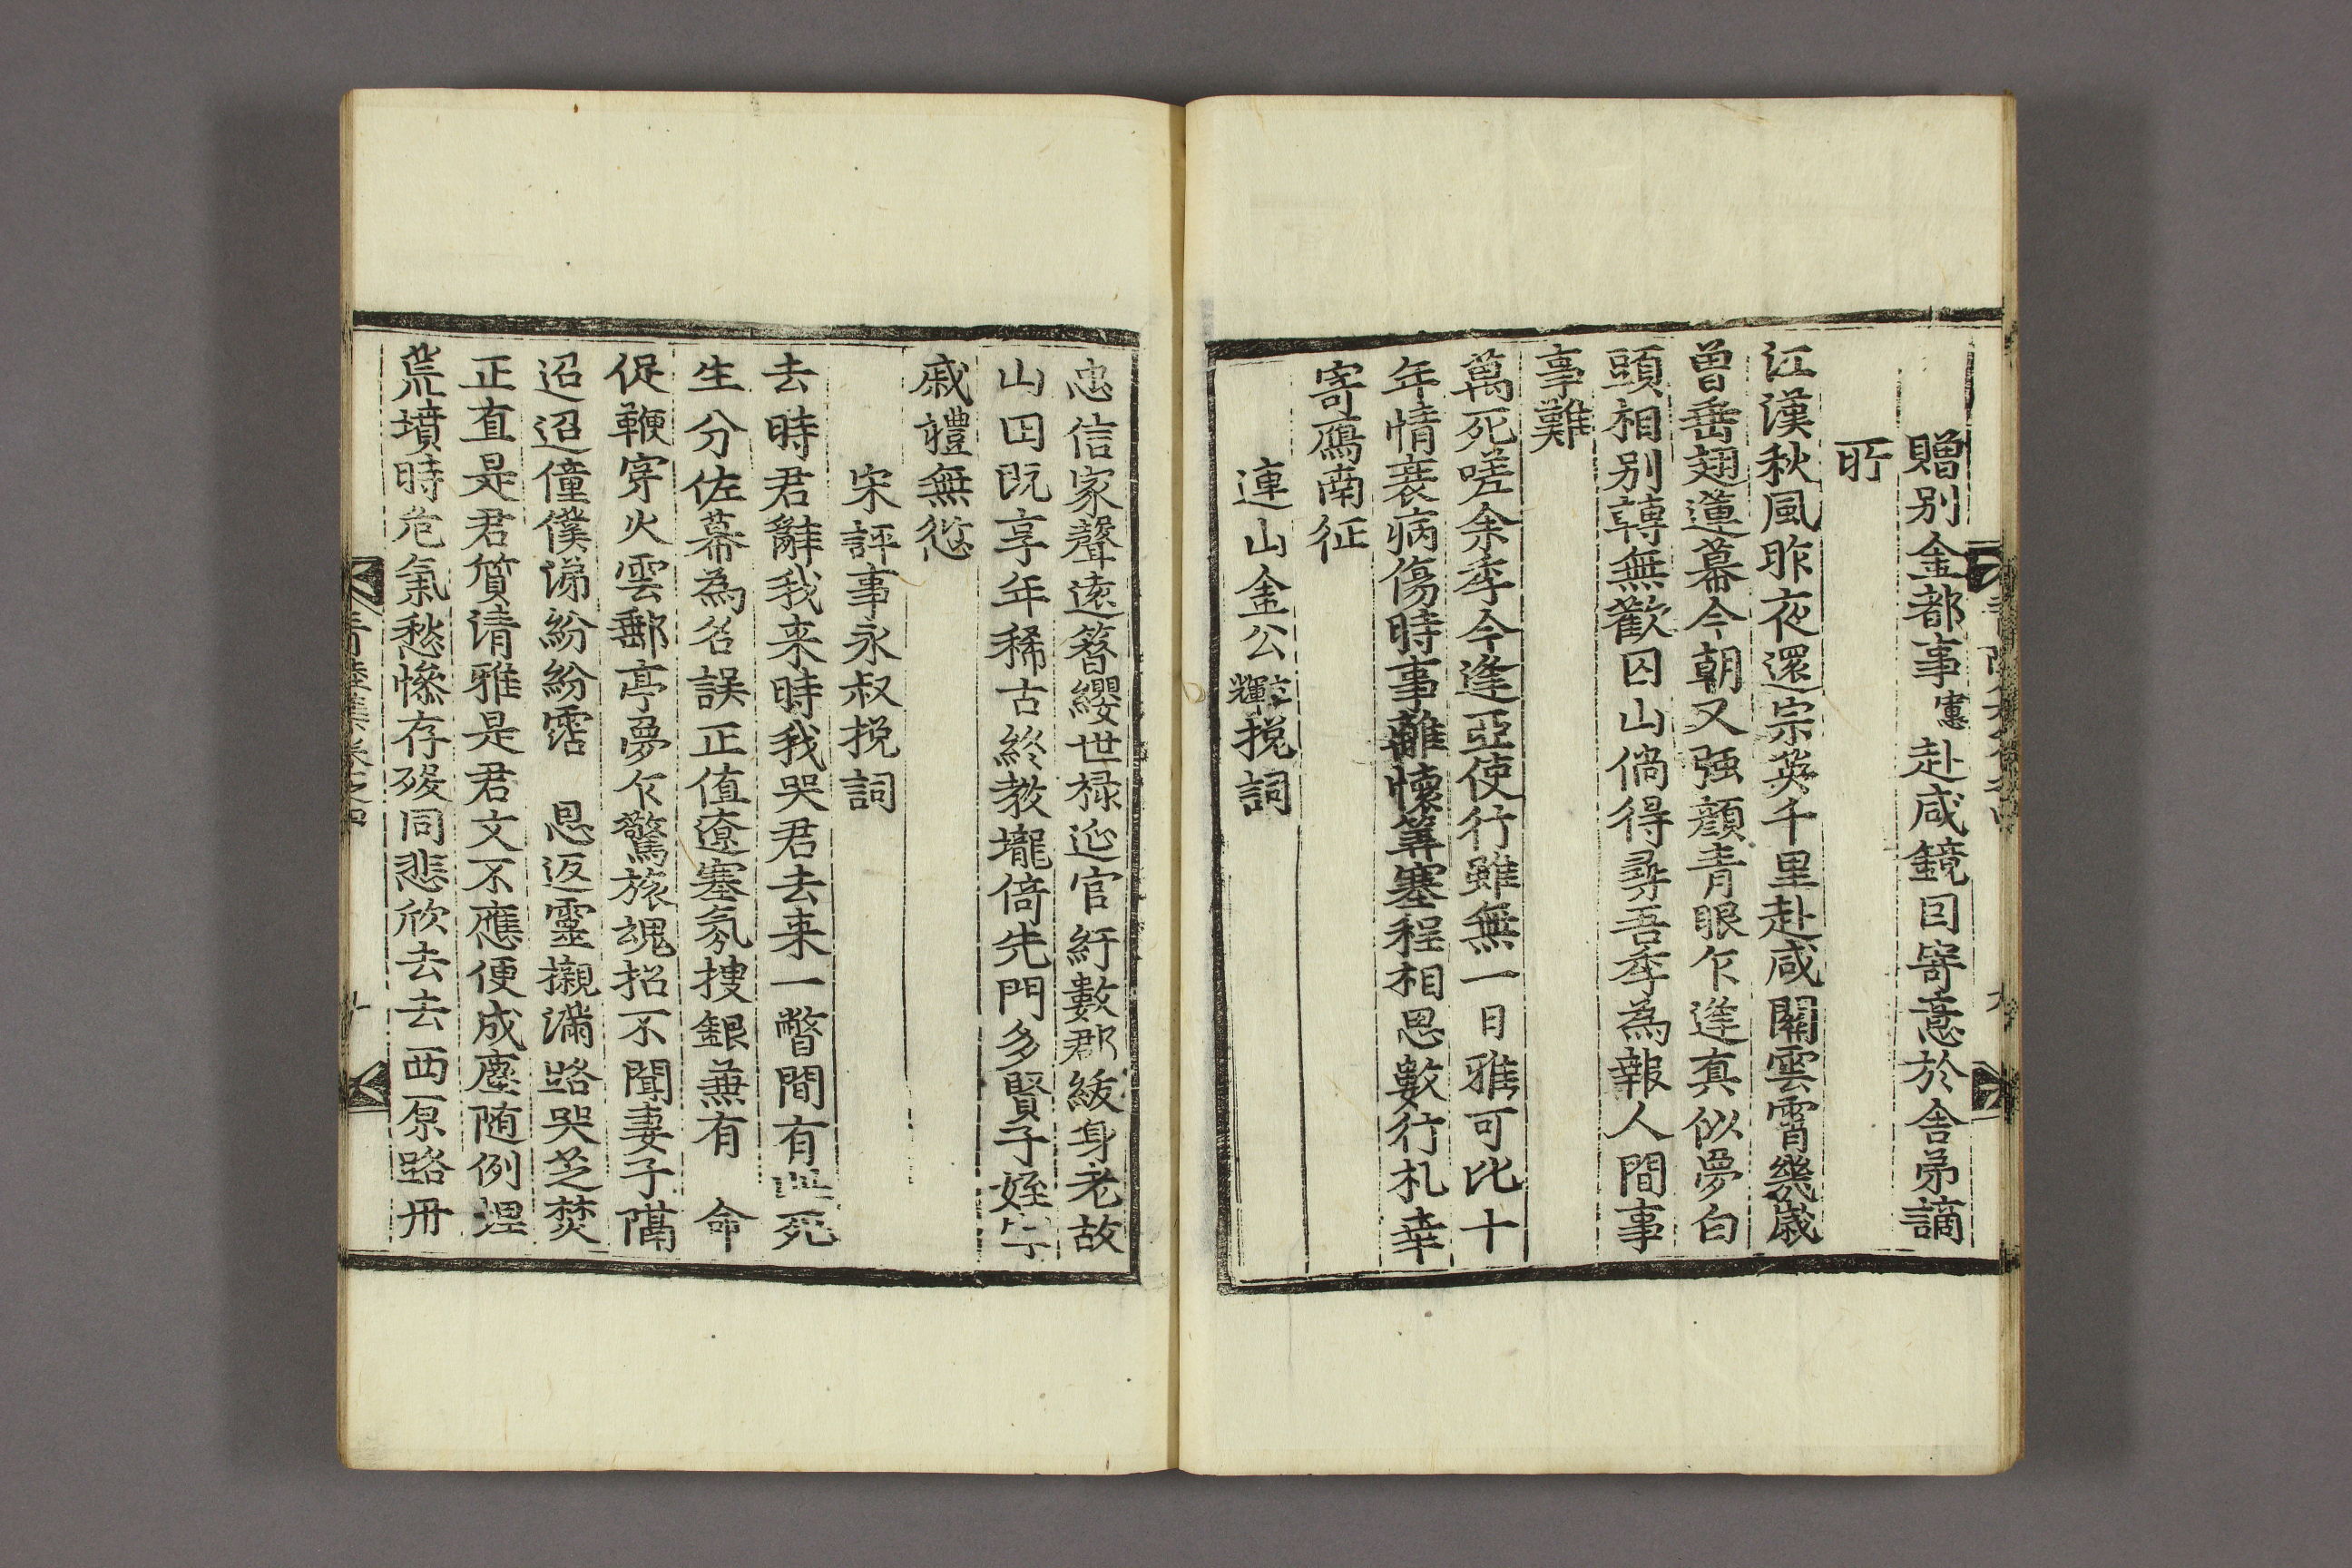 贈别金都事慮赴咸鏡囙寄意於舍弟謫
所
江漢秋風昨夜還宗英千里赴咸關雲霄幾歲
曽垂翅蓮幕今朝又强顔青眼乍逢真似夢白
頭相别轉無歡囚山倘得尋吾季為報人間事
事難
萬死嗟余季今逢亞使行雖無一日雅可比十
年情衰病傷時事離懷筭塞程相思數行札幸
寄鴈南征
連山金公輝挽詞
忠信家聲遠簪纓世祿延官紆數郡紱身老故
山田既享年稀古終教壠倚先門多賢子姪
戚禮無愆
宋評事永叔挽詞
去時君辭我来時我哭君去来一瞥間有此死
生分佐幕為名誤正值遼塞氛搜銀無有 命
促鞭穿火雲郵亭夢乍驚旅魂招不聞妻子隔
迢迢僮僕涕紛紛霑 恩返靈櫬滿路哭芝焚
正直是君質清雅是君文不應便成塵随例埋
荒墳時危氣愁慘存歿同悲欣去去西原路冊
青陸集卷之四
十